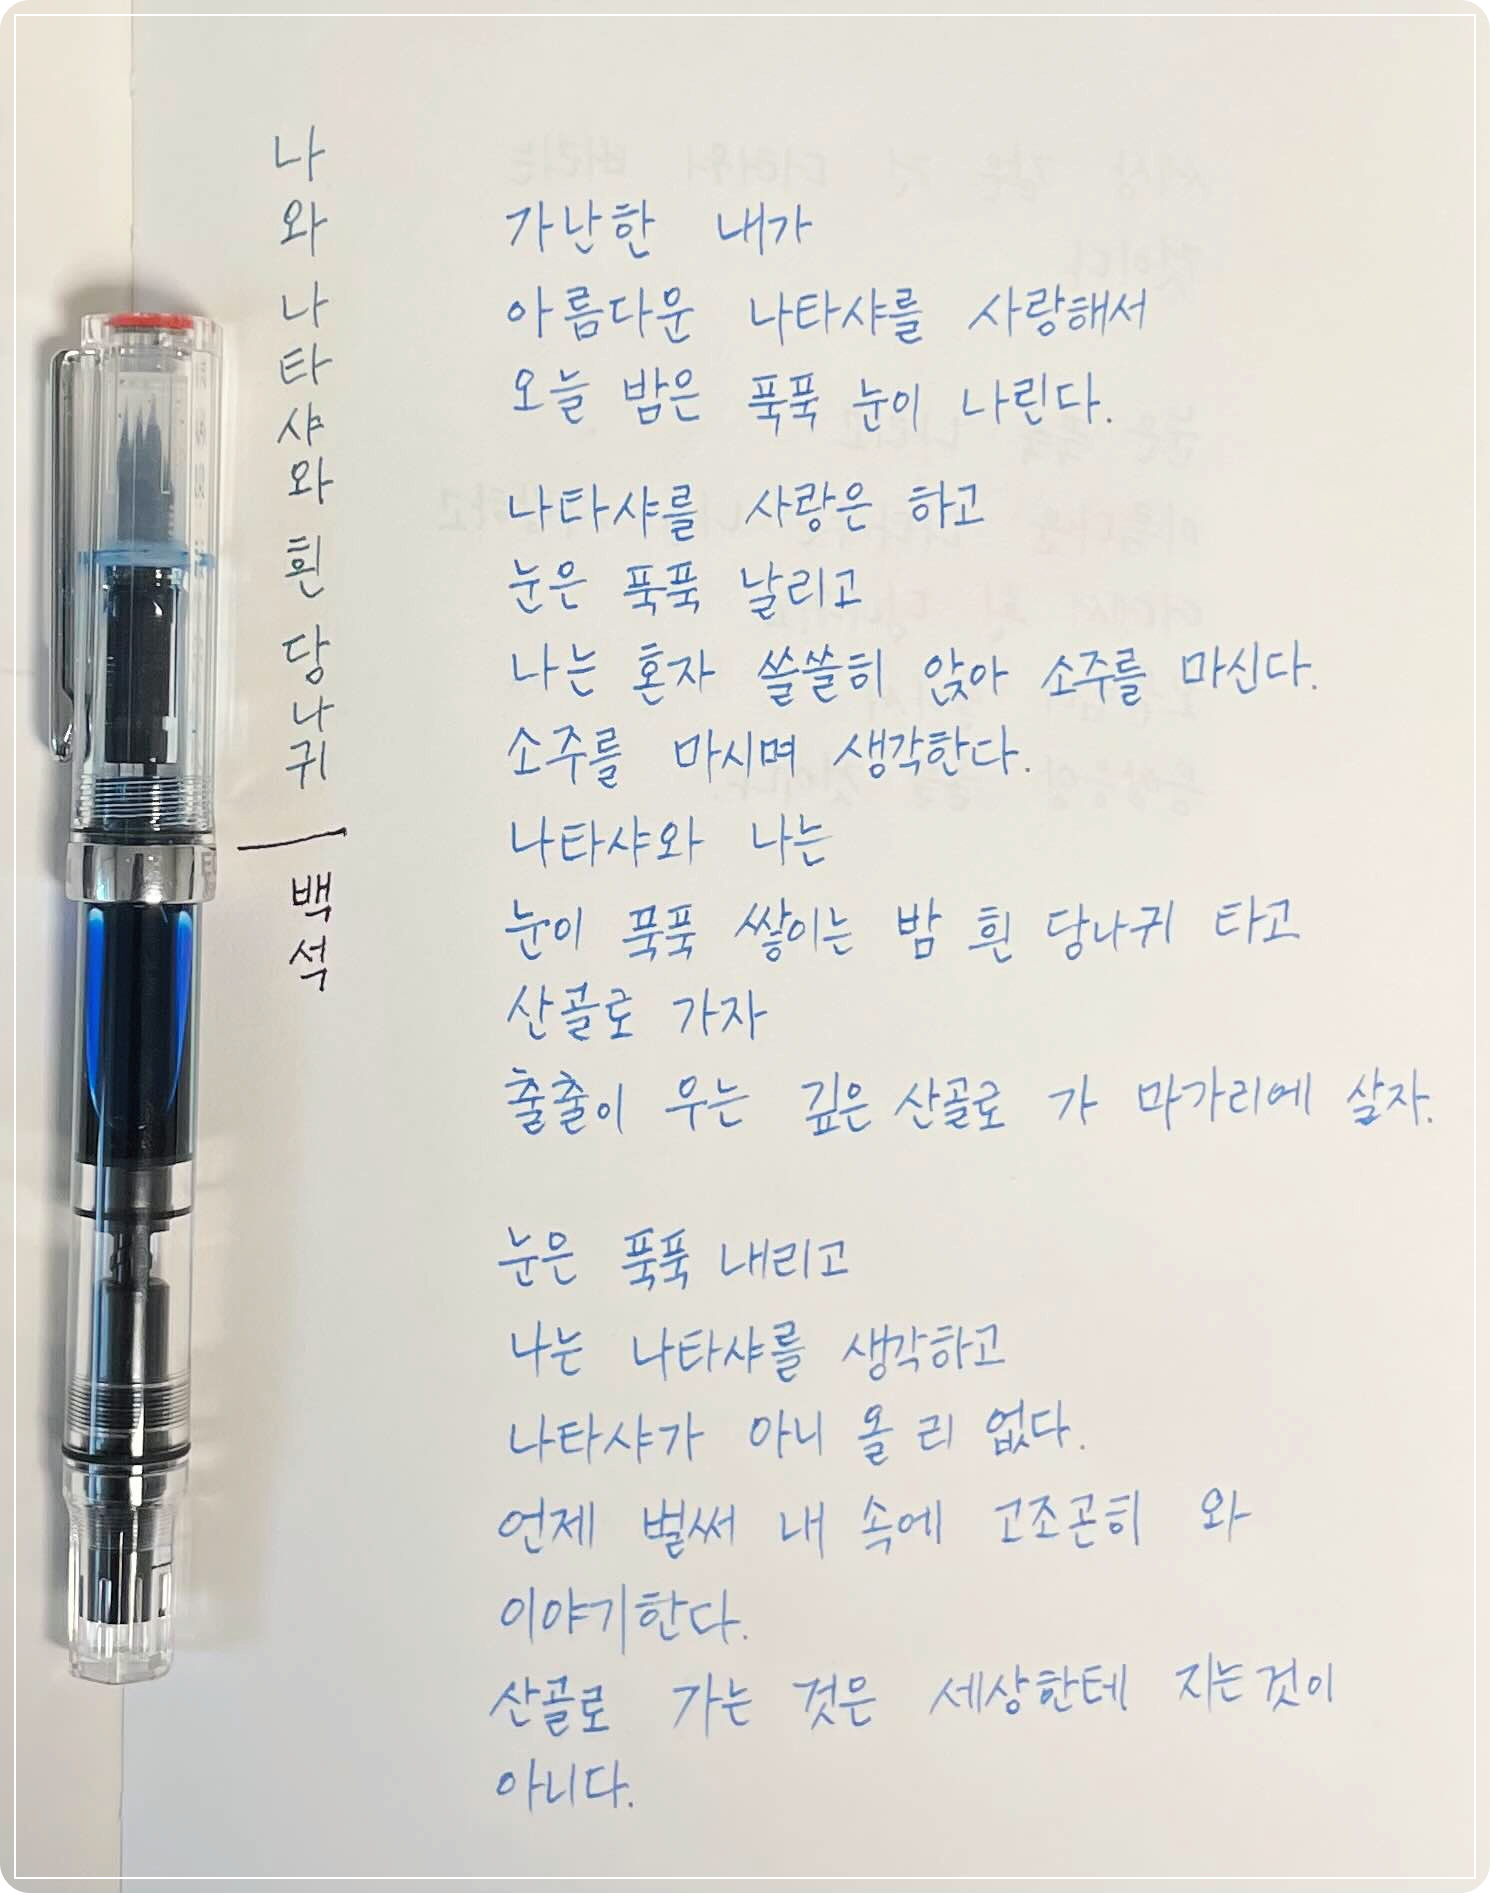 나와 나타샤와 흰 당나귀
백석
가난한 내가
아름다운 나타샤를 사랑해서
오늘 밤은 푹푹 눈이 나린다.
나타샤를 사랑은 하고
눈은 푹푹 날리고
나는 혼자 쓸쓸히 앉아 소주를 마신다.
소주를 마시며 생각한다.
나타샤와 나는
눈이 푹푹 쌓이는 밤 흰 당나귀 타고
산골로 가자
출출이 우는 깊은 산골로 가 마가리에 살자.
눈은 푹푹 내리고
나는 나타샤를 생각하고
나타샤가 아니 올 리 없다.
언제 벌써 내 속에 고조곤히 와
이야기한다.
산골로 가는 것은 세상한테 지는것이
아니다.